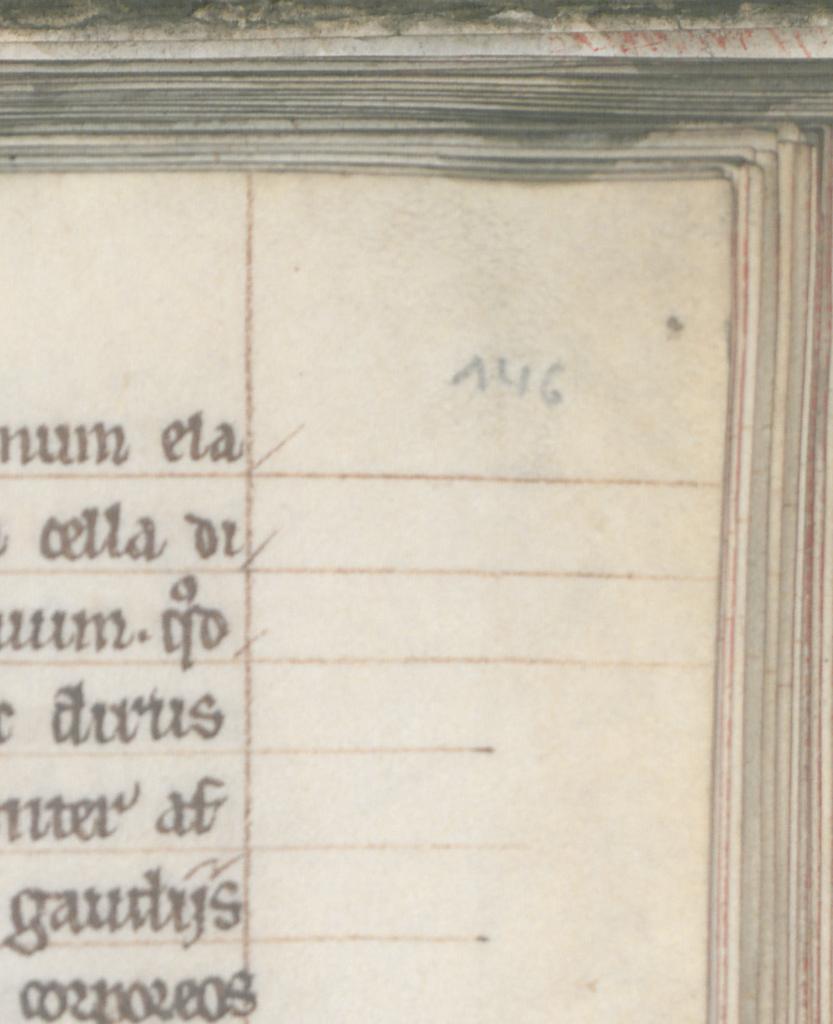 146
num ela
cella di
uum. qͦd
dirus
nter af
gaudijs
corporeos